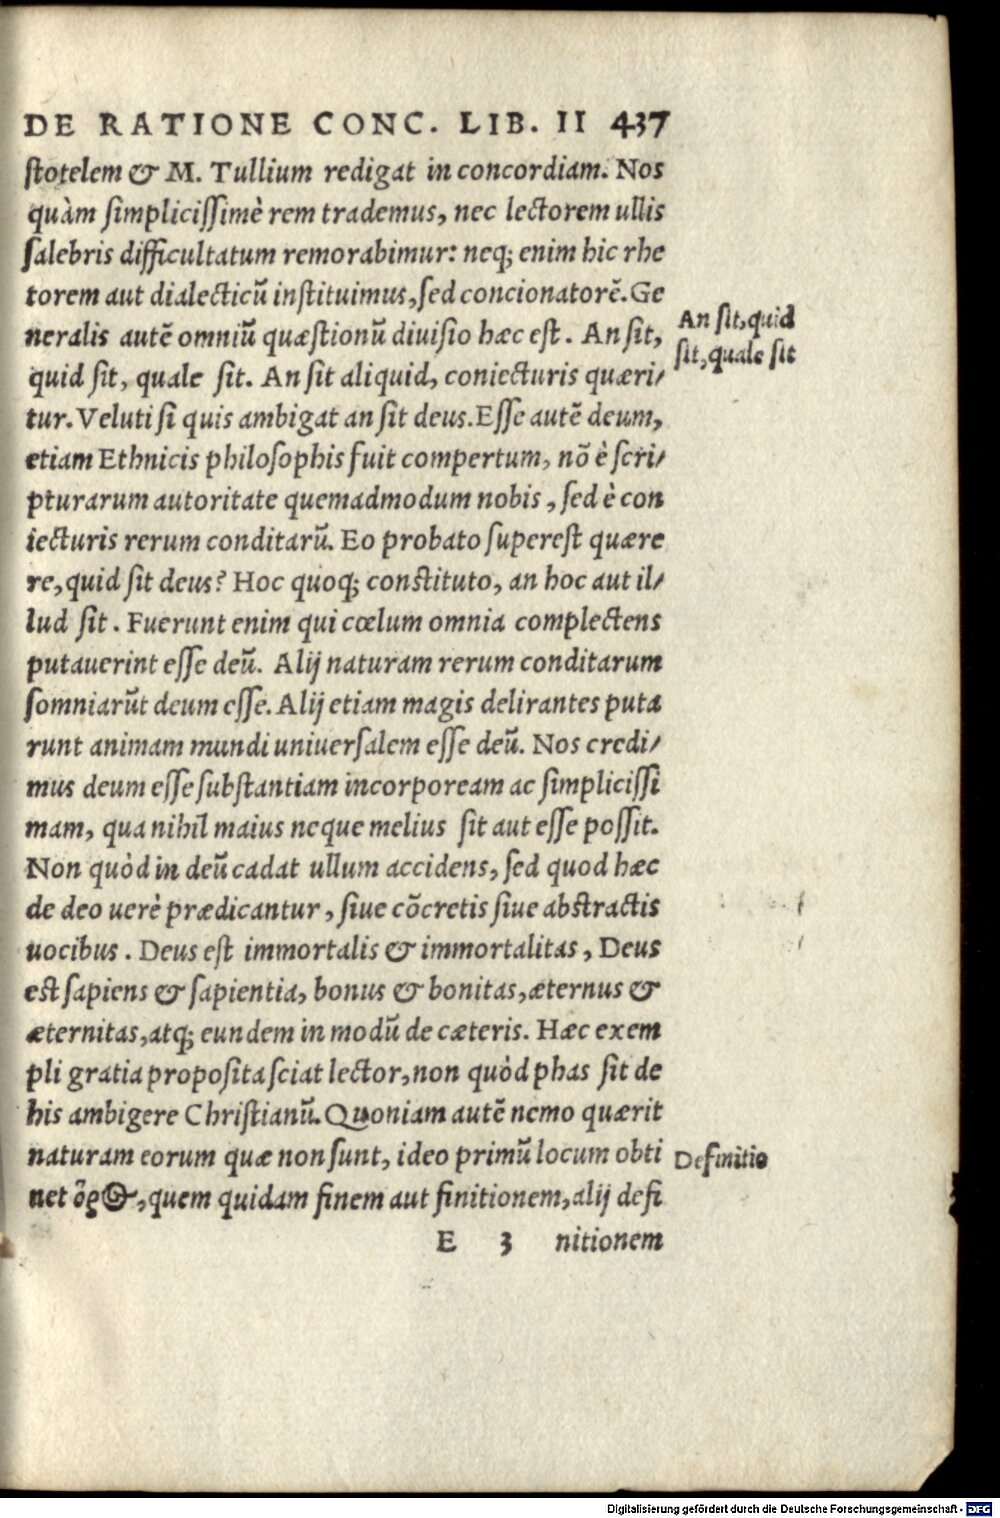 DE RATIONE CONC. LIB. II 437
ſtotelem & M. Tullium redigat in concordiam. Nos
quàm ſimpliciſſimè rem trademus, nec lectorem ullis
ſalebris difficultatum remorabimur: neq; enim hic rhe
torem aut dialecticũ inſtituimus, ſed concionatorẽ. Ge
neralis autẽ omniũ quæſtionũ diuiſio hæc eſt. An ſit,
An ſit, quid
ſit, quale ſit
quid ſit, quale ſit. An ſit aliquid, coniecturis quæri/
tur. Veluti ſi quis ambigat an ſit deus. Eſſe autẽ deum,
etiam Ethnicis philoſophis fuit compertum, nõ è ſcri/
pturarum autoritate quemadmodum nobis, ſed è con
iecturis rerum conditarũ. Eo probato ſupereſt quære
re, quid ſit deus? Hoc quoq; conſtituto, an hoc aut il/
lud ſit. Fuerunt enim qui cœlum omnia complectens
putauerint eſſe deũ. Alij naturam rerum conditarum
ſomniarũt deum eſſe. Alij etiam magis delirantes puta
runt animam mundi uniuerſalem eſſe deũ. Nos credi/
mus deum eſſe ſubſtantiam incorpoream ac ſimpliciſſi
mam, qua nihil maius neque melius ſit aut eſſe poſſit.
Non quòd in deũ cadat ullum accidens, ſed quod hæc
de deo uerè prædicantur, ſiue cõcretis ſiue abſtractis
uocibus. Deus eſt immortalis & immortalitas, Deus
eſt ſapiens & ſapientia, bonus & bonitas, æternus &
æternitas, atq; eundem in modũ de cæteris. Hæc exem
pli gratia propoſita ſciat lector, non quòd phas ſit de
his ambigere Chriſtianũ. Quoniam autẽ nemo quærit
naturam eorum quæ non ſunt, ideo primũ locum obti
Definitio
net ὅρος, quem quidam finem aut finitionem, alij defi
E 3 nitionem
Digitalisierung gefördert durch die Deutsche Forschungsgemeinschaft - DFG